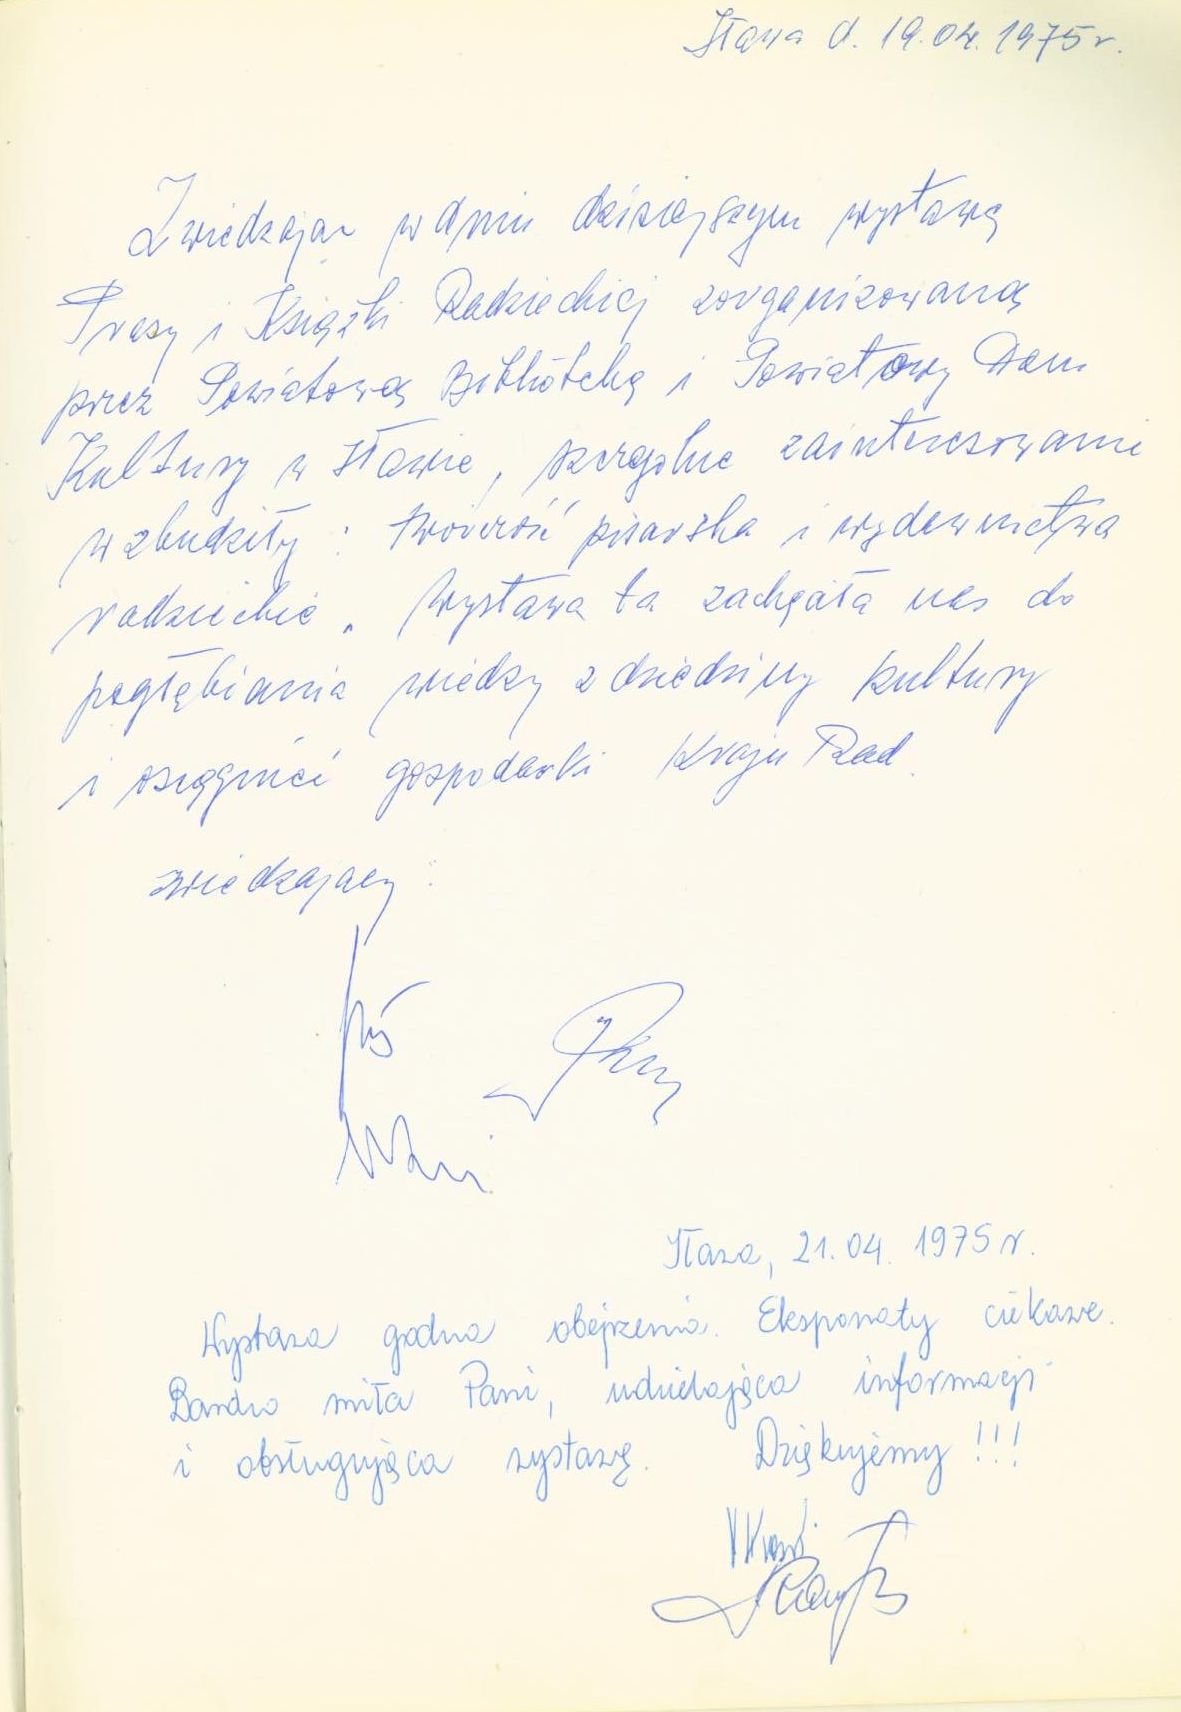 Iława d. 19.04.1975r.
Zwiedzając w dniu dzisiejszym wystawę
Prasy i Książki Radzieckiej zorganizowaną
przez Powiatową Bibliotekę i Powiatowy Dom
Kultury w Iławie, szczególne zainteresowanie
wzbudziły: twórczość pisarska i wydawnictwa
radzieckie. Wystawa ta zachęciła nas do
pogłębiania wiedzy z dziedziny kultury
i osiągnięć gospodarki Kraju Rad.
zwiedzający:
Iława, 21.04.1975r.
Wystawa godna obejrzenia. Eksponaty ciekawe.
Bardzo miła Pani, udzielająca informacji
i obsługująca wystawę. Dziękujemy!!!